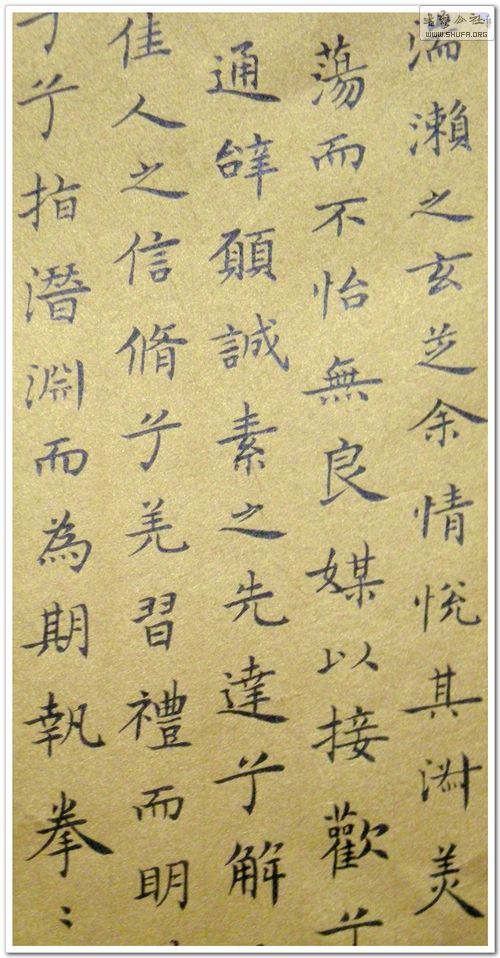 湍瀨之玄芝余情悅其淑美
蕩而不怡無良媒以接歡兮
通辝願誠素之先達兮解
佳人之信脩兮羌習禮而明
兮指潛淵而為期執拳〻
WWW.SHUFA.ORG